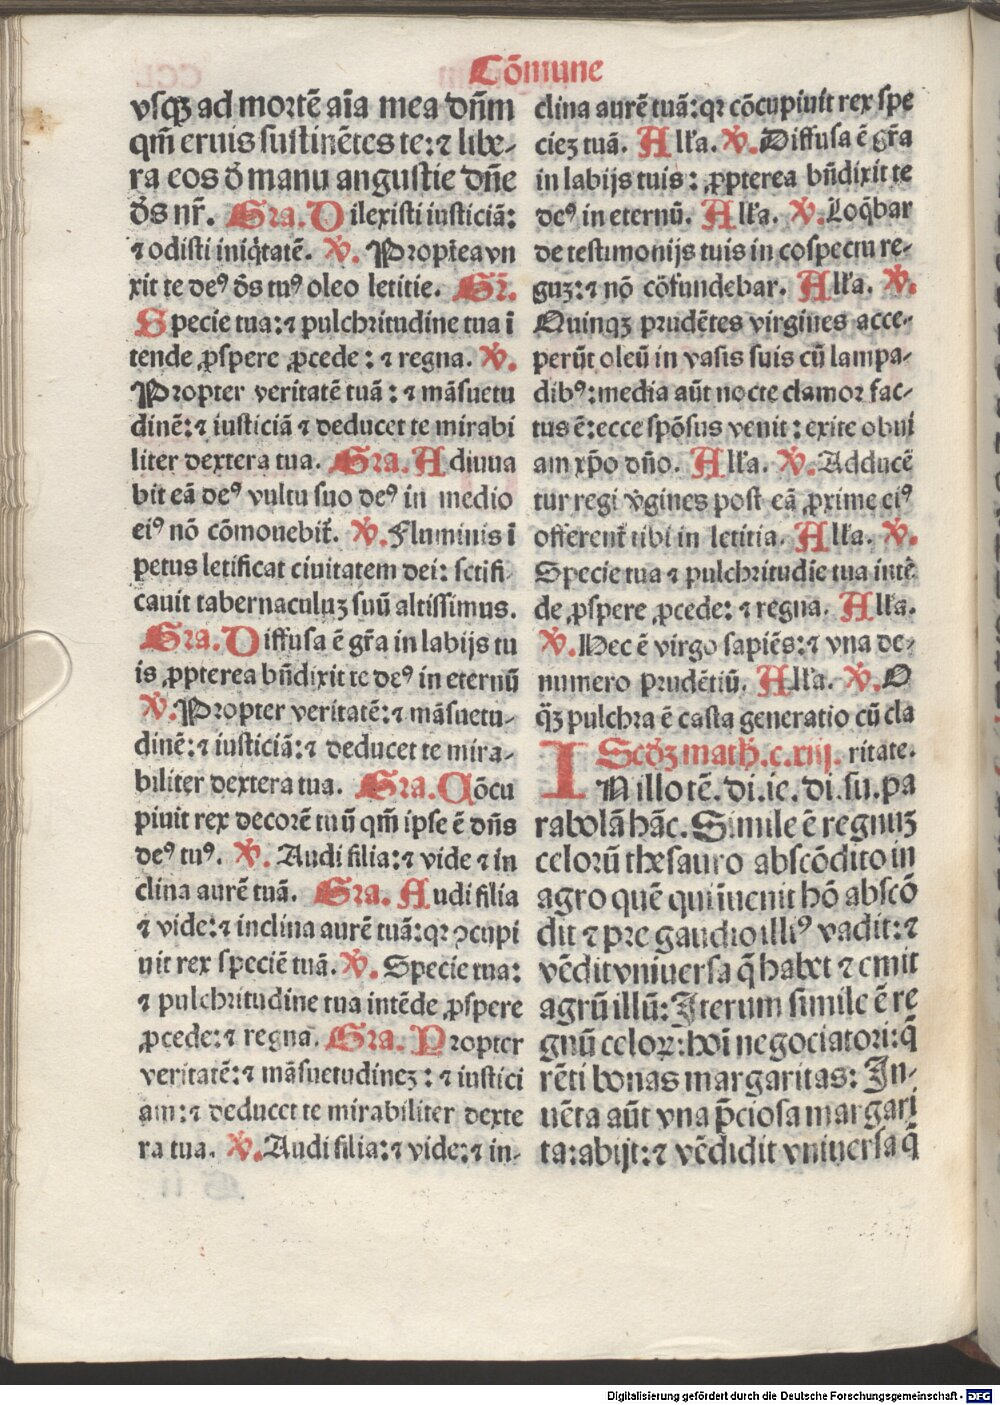 Cōmune
vsqꝫ ad mortē aīa mea dn̄m
qm̄ eruis sustinētes te: ⁊ libe-
ra eos ð manu angustie dn̄e
ds̄ nr̄. Gra. Dilexisti iusticiā:
⁊ odisti iniqͥtatē. ℣. Propt̄ea vn
xit te deꝰ ds̄ tuꝰ oleo letitie. Gr̄.
Specie tua: ⁊ pulchritudine tua ī
tende ꝓspere ꝓcede: ⁊ regna. ℣.
Propter veritatē tuā: ⁊ māsuetu
dinē: ⁊ iusticiā ⁊ deducet te mirabi
liter dextera tua. Gra. Adiuua
bit eā deꝰ vultu suo deꝰ in medio
eiꝰ nō cōmouebit̄. ℣. Fluminis ī
petus letificat ciuitatem dei: sctifi
cauit tabernaculuꝫ suū altissimus.
Gra. Diffusa ē gr̄a in labijs tu
is ꝓpterea bn̄dixit te deꝰ in eternū
℣. Propter veritatē: ⁊ māsuetu-
dinē: ⁊ iusticiā: ⁊ deducet te mira-
biliter dextera tua. Gra. Cōcu
piuit rex decorē tuū qm̄ ipse ē dn̄s
deꝰ tuꝰ. ℣. Audi filia: ⁊ vide ⁊ in
clina aurē tuā. Gra. Audi filia
⁊ vide: ⁊ inclina aurē tuā: qꝛ ꝯcupi
uit rex speciē tuā. ℣. Specie tua:
⁊ pulchritudine tua intēde ꝓspere
ꝓcede: ⁊ regna. Gra. Propter
veritatē: ⁊ māsuetudineꝫ: ⁊ iustici
am: ⁊ deducet te mirabiliter dexte
ra tua. ℣. Audi filia: ⁊ vide: ⁊ in-
clina aurē tuā: qꝛ cōcupiuit rex spe
cieꝫ tuā. All'a. ℣. Diffusa ē gr̄a
in labijs tuis: ꝓpterea bn̄dixit te
deꝰ in eternū. All'a. ℣. Loqͣbar
de testimonijs tuis in cōspectu re-
guꝫ: ⁊ nō cōfundebar. All'a. ℣.
Quinqꝫ prudētes virgines acce-
perūt oleū in vasis suis cū lampa-
dibꝰ: media aūt nocte clamor fac-
tus ē: ecce spōsus venit: exite obui
am xp̄o dn̄o. All'a. ℣. Adducē
tur regi v̄gines post eā ꝓxime eiꝰ
offerent̄ tibi in letitia. All'a. ℣.
Specie tua ⁊ pulchritudīe tua intē
de ꝓspere ꝓcede: ⁊ regna. All'a.
℣. Hec ē virgo sapiēs: ⁊ vna de-
numero prudētiū. All'a. ℣. O
qͣꝫ pulchra ē casta generatio cū cla
Scdꝫ math̄. c. xiij. ritate.
IN illo tē. di. ie. di. su. pa
rabolā hāc. Simile ē regnuꝫ
celorū thesauro abscōdito in
agro quē qui īuenit hō abscō
dit ⁊ pre gaudio illiꝰ vadit: ⁊
vēdit vniuersa q̄ habet ⁊ emit
agrū illū: Iterum simile ē re
gnū celoꝝ: hoī negociatori: q̄
rēti bonas margaritas: In-
uēta aūt vna p̄ciosa margari
ta: abijt: ⁊ vēdidit vniuersa q̄
Digitalisierung gefördert durch die Deutsche Forschungsgemeinschaft - DFG